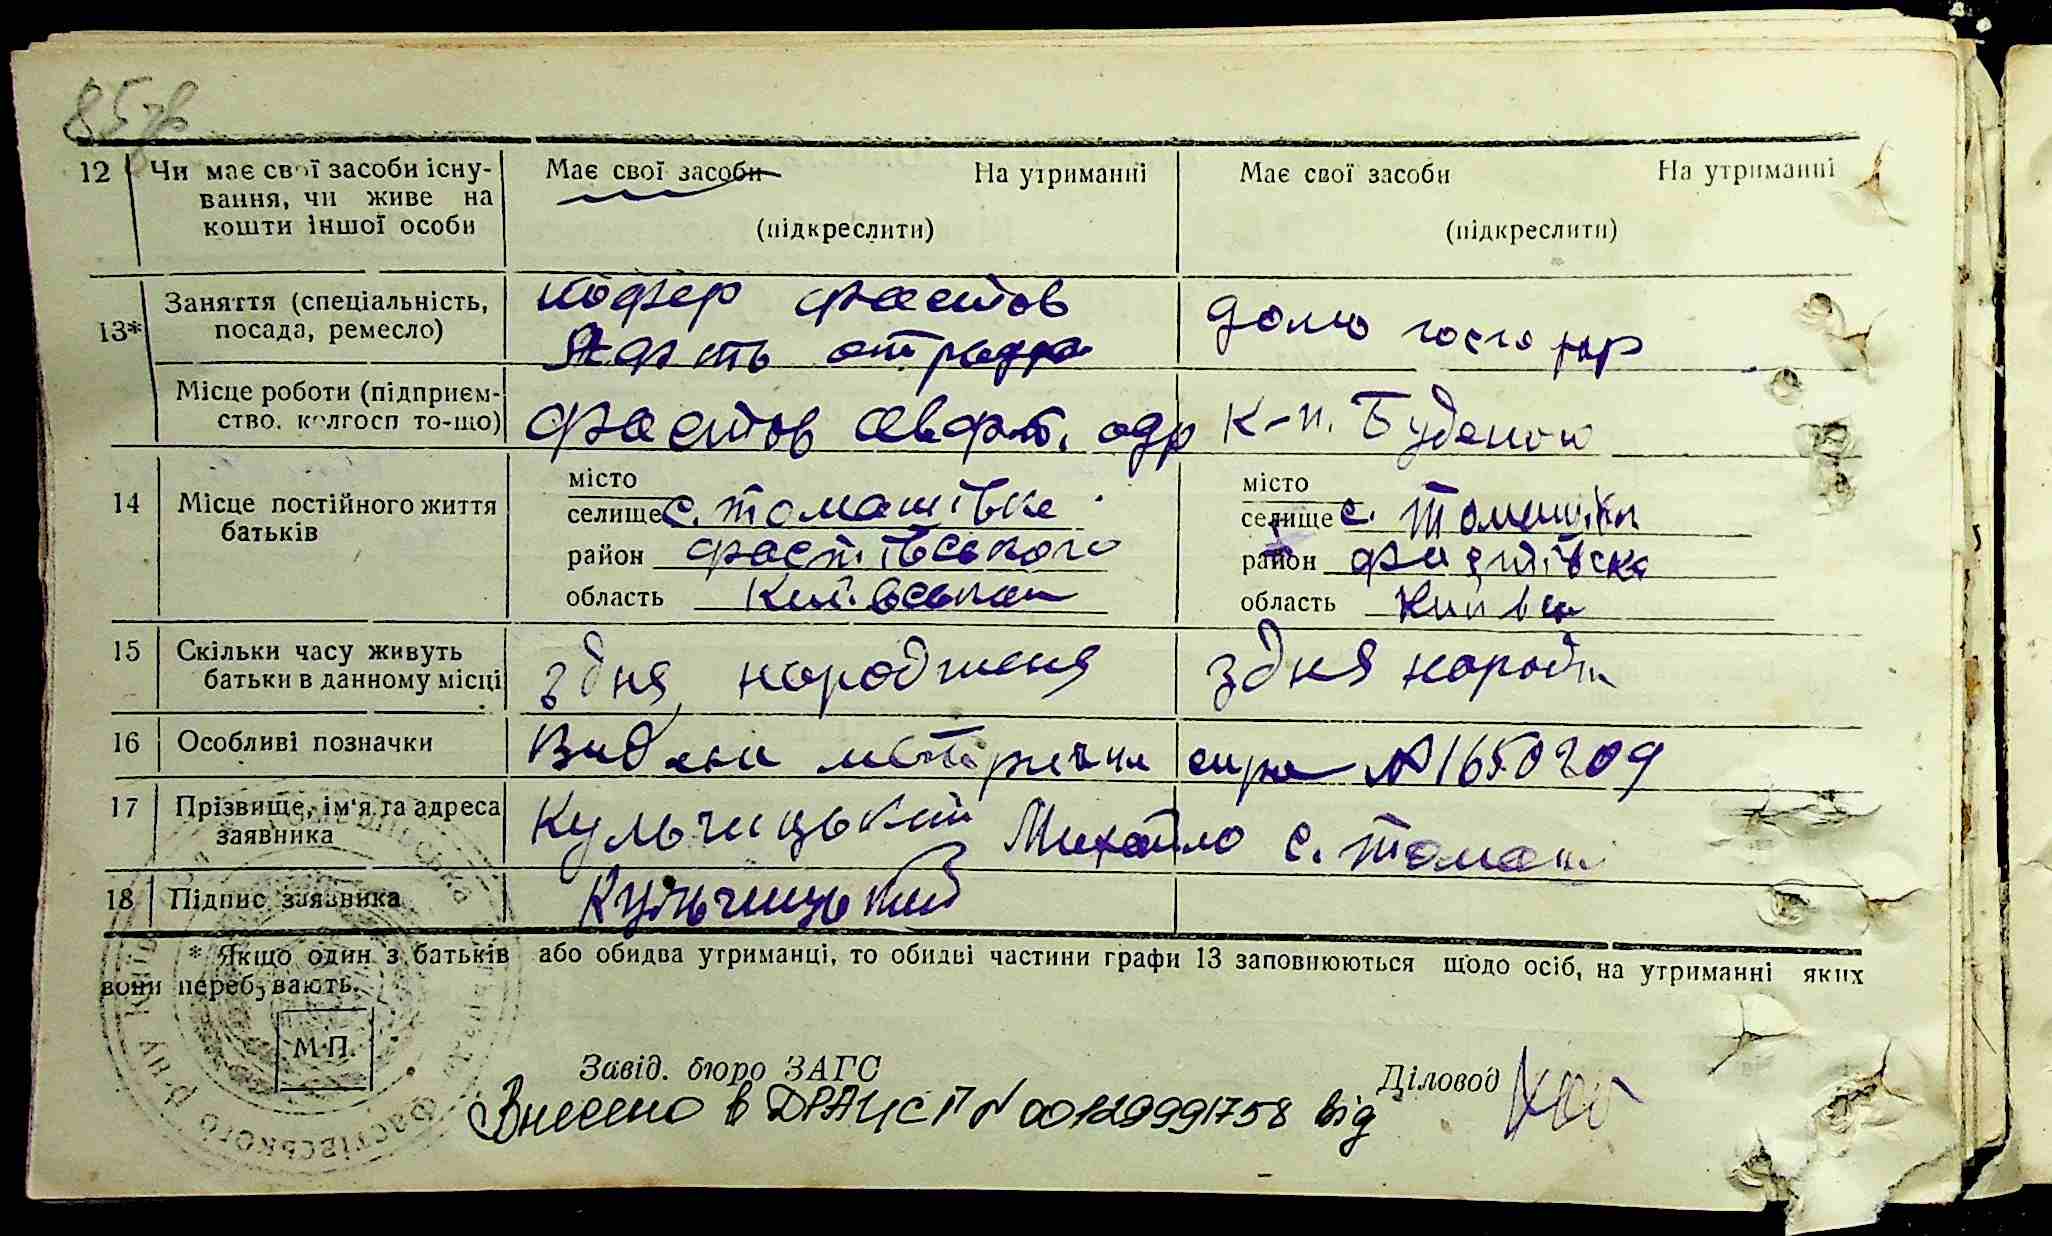 85зв
12 Чи має свої засоби існу- Має свої засоби На утриманні Має свої засоби На утриманні
вання, чи живе на
кошти іншої особи (підкреслити) (підкреслити)
13* Заняття (спеціальність, фастов домо госпо
посада, ремесло)
Місце роботи (підприєм- фастов к-п. Буденого
ство, колгосп то-що)
14 Місце постійного життя місто місто
батьків селище с. Томашівка селище с.
район фастівського район фастівска
область Київська область Київ
15 Скільки часу живуть з дня народженя з дня народж
батьки в данному місці
16 Особливі позначки Видана метрична № 1650209
17 Прізвище, ім'я та адреса Кульчицький Михайло с. Томаш
заявника
18 Підпис заявника Кульчицький
* Якщо один з батьків або обидва утриманці, то обидві частини графи 13 заповнюються щодо осіб, на утриманні яких
вони перебувають.
М П.
Завід. бюро ЗАГС Діловод
Внесено в ДРАЦСГ № 00129991758 від
Фастівського р-ну